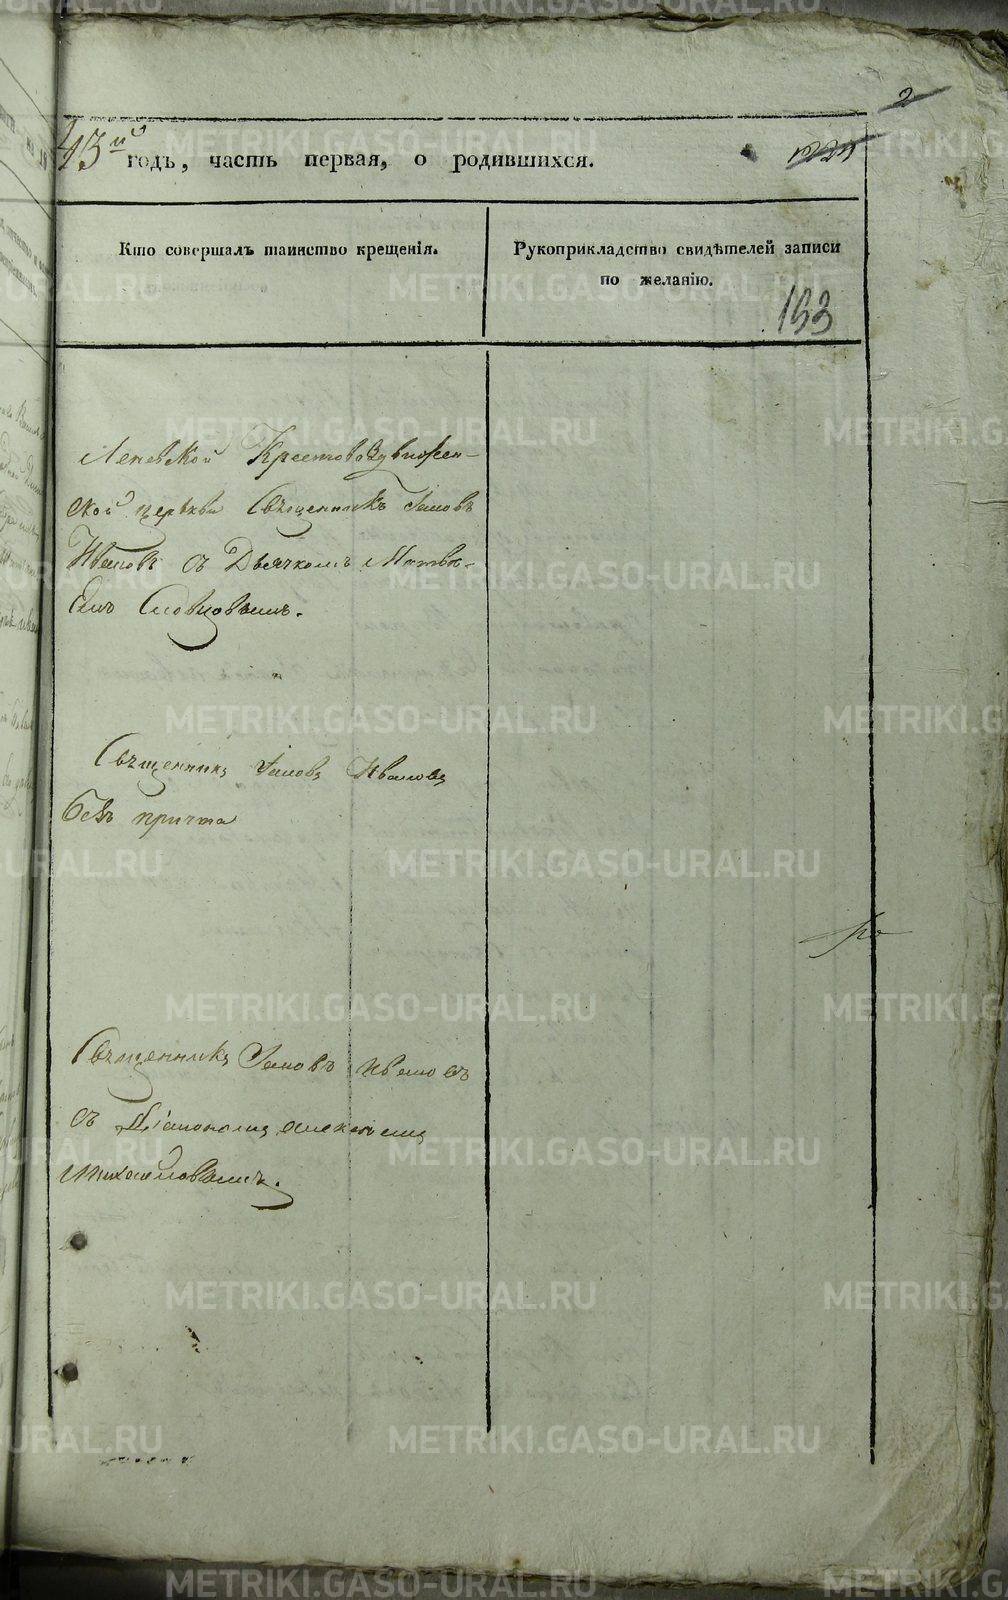 2
43й годъ, часть первая, о родившихся.
Кто совершалъ таинство крещенія.
Рукоприкладство свидѣтелей записи
по желанію.
153
Леневской Крестовоздвижен-
ской церькви Священникъ Іаковъ
Ивановъ съ Дьячкомъ Матвѣ-
емъ Словцовымъ.
Священникъ Іаковъ Ивановъ
безъ причта
Священникъ Іаковъ Ивановъ
съ Діакономъ Алексѣемъ
Михайловымъ.
METRIKI.GASO-URAL.RU